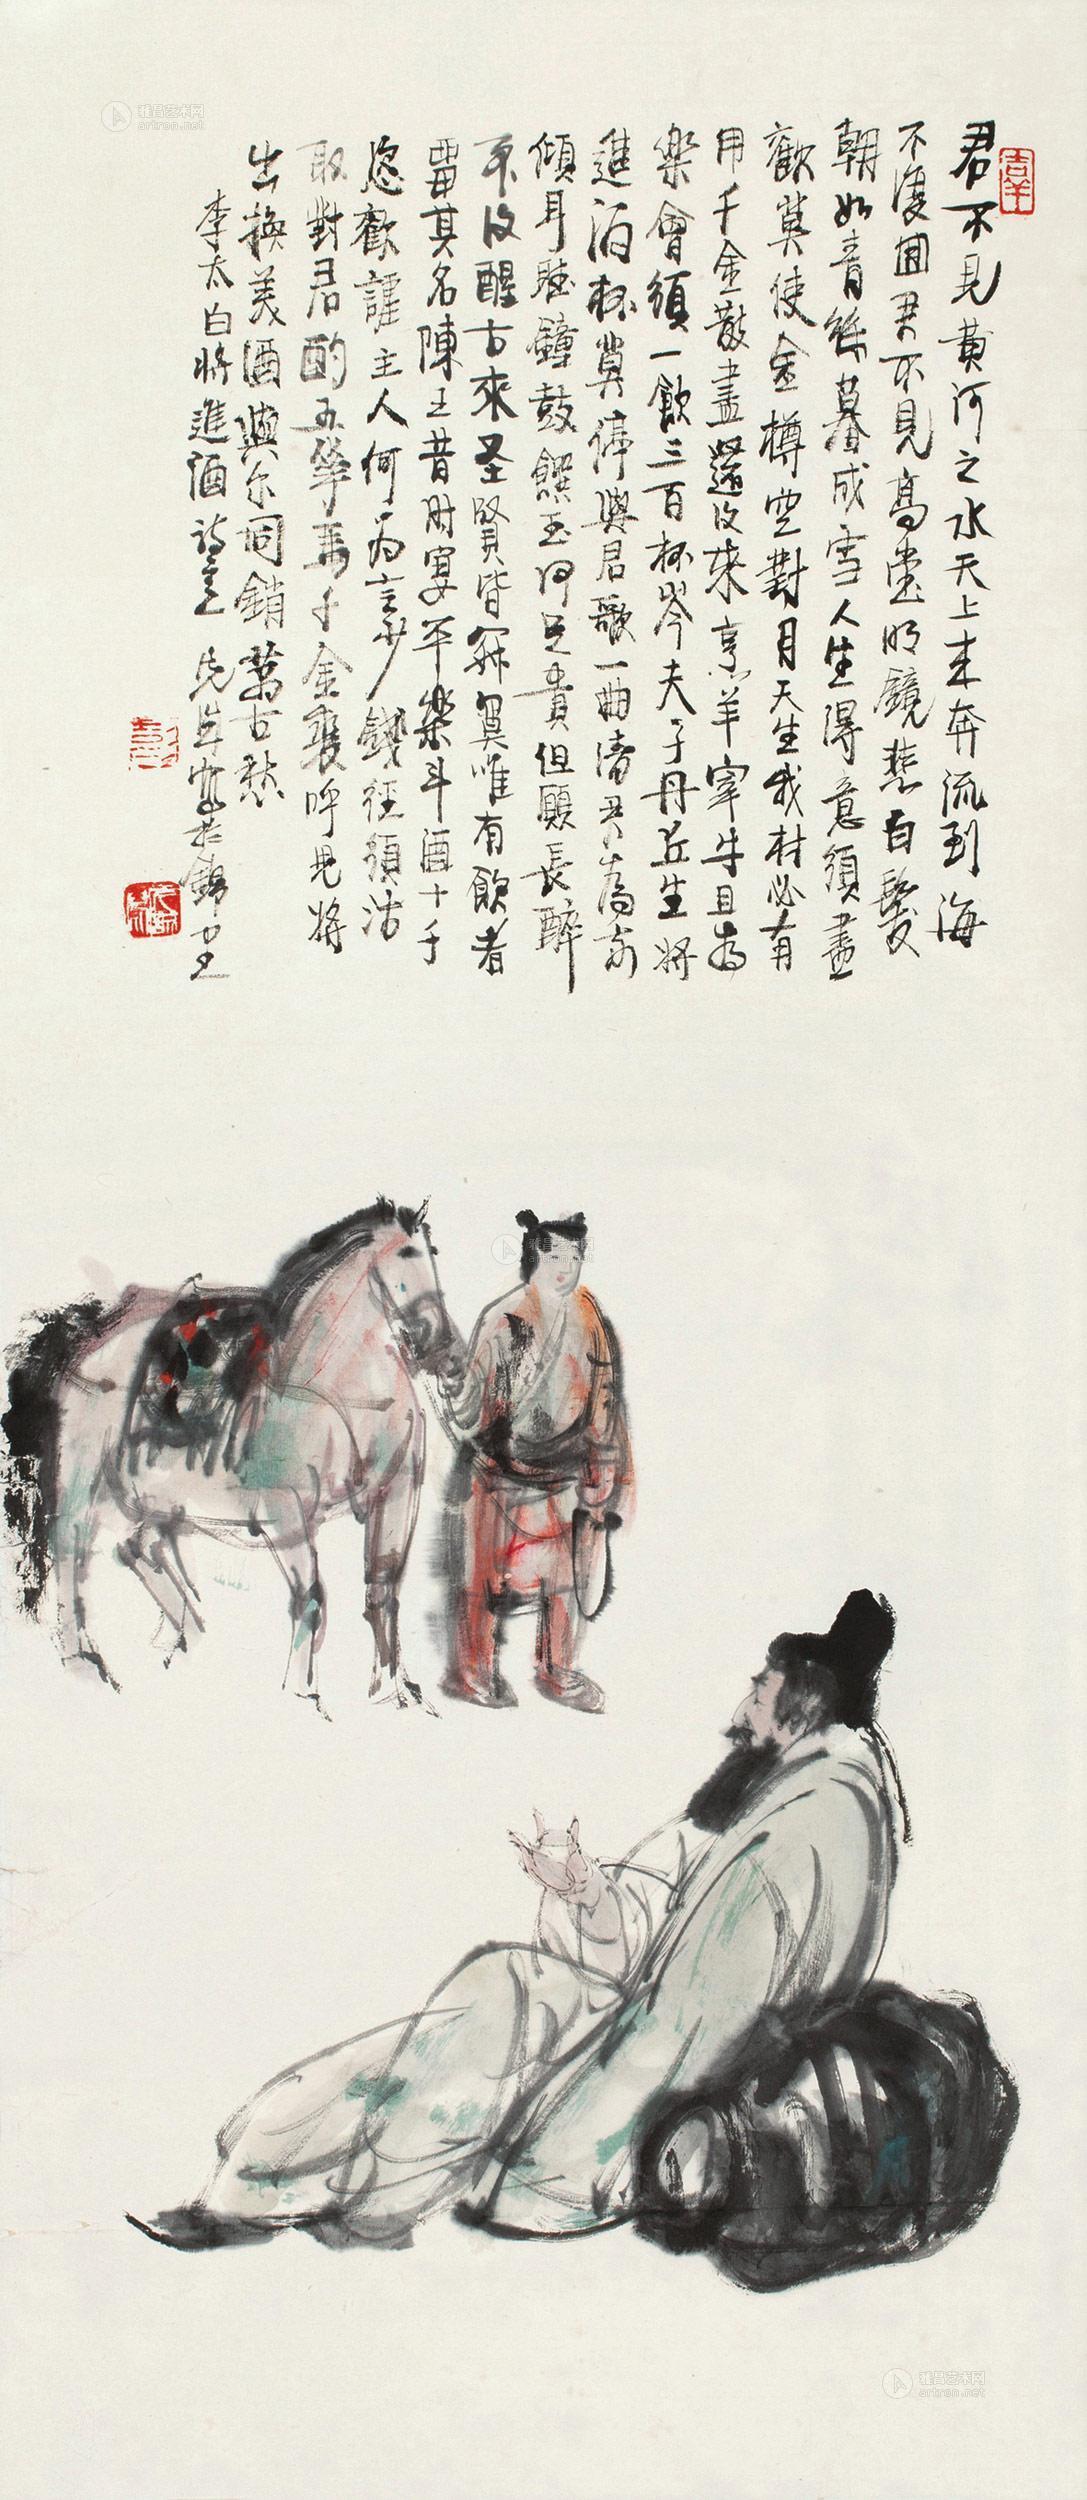 君不見黃河之水天上來奔流到海
不復回君不見高堂明鏡悲白髮
朝如青絲暮成雪人生得意須盡
歡莫使金樽空對月天生我材必有
用千金散盡還復來烹羊宰牛且為
樂會須一飲三百杯岑夫子丹丘生將
進酒杯莫停與君歌一曲請君為我
傾耳聽鐘鼓饌玉何足貴但願長醉
不復醒古來圣賢皆寂寞唯有飲者
留其名陳王昔時宴平樂斗酒十千
恣歡謔主人何為言少錢徑須沽
取對君酌五花馬千金裘呼兒將
出換美酒與尔同銷萬古愁
李太白將進酒詩意 先誠寫於錦
吉羊
雅昌艺术网
artron.net
雅昌艺术网
artron.net
雅昌艺术网
artron.net